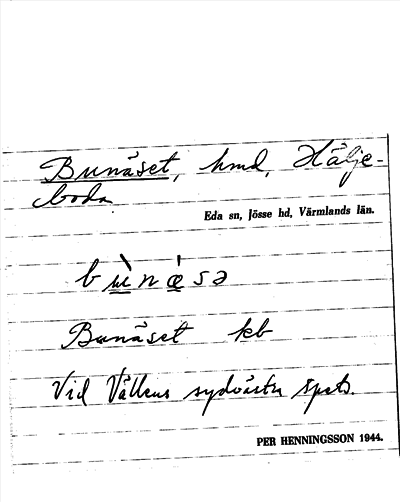 Bunäset, hmd, Hälje-
boda
Eda sn, Jösse hd, Värmlands län.
bùnǽsə
Bunäset kb
Vid Vällens sydvästra spets.
PER HENNINGSSON 1944.